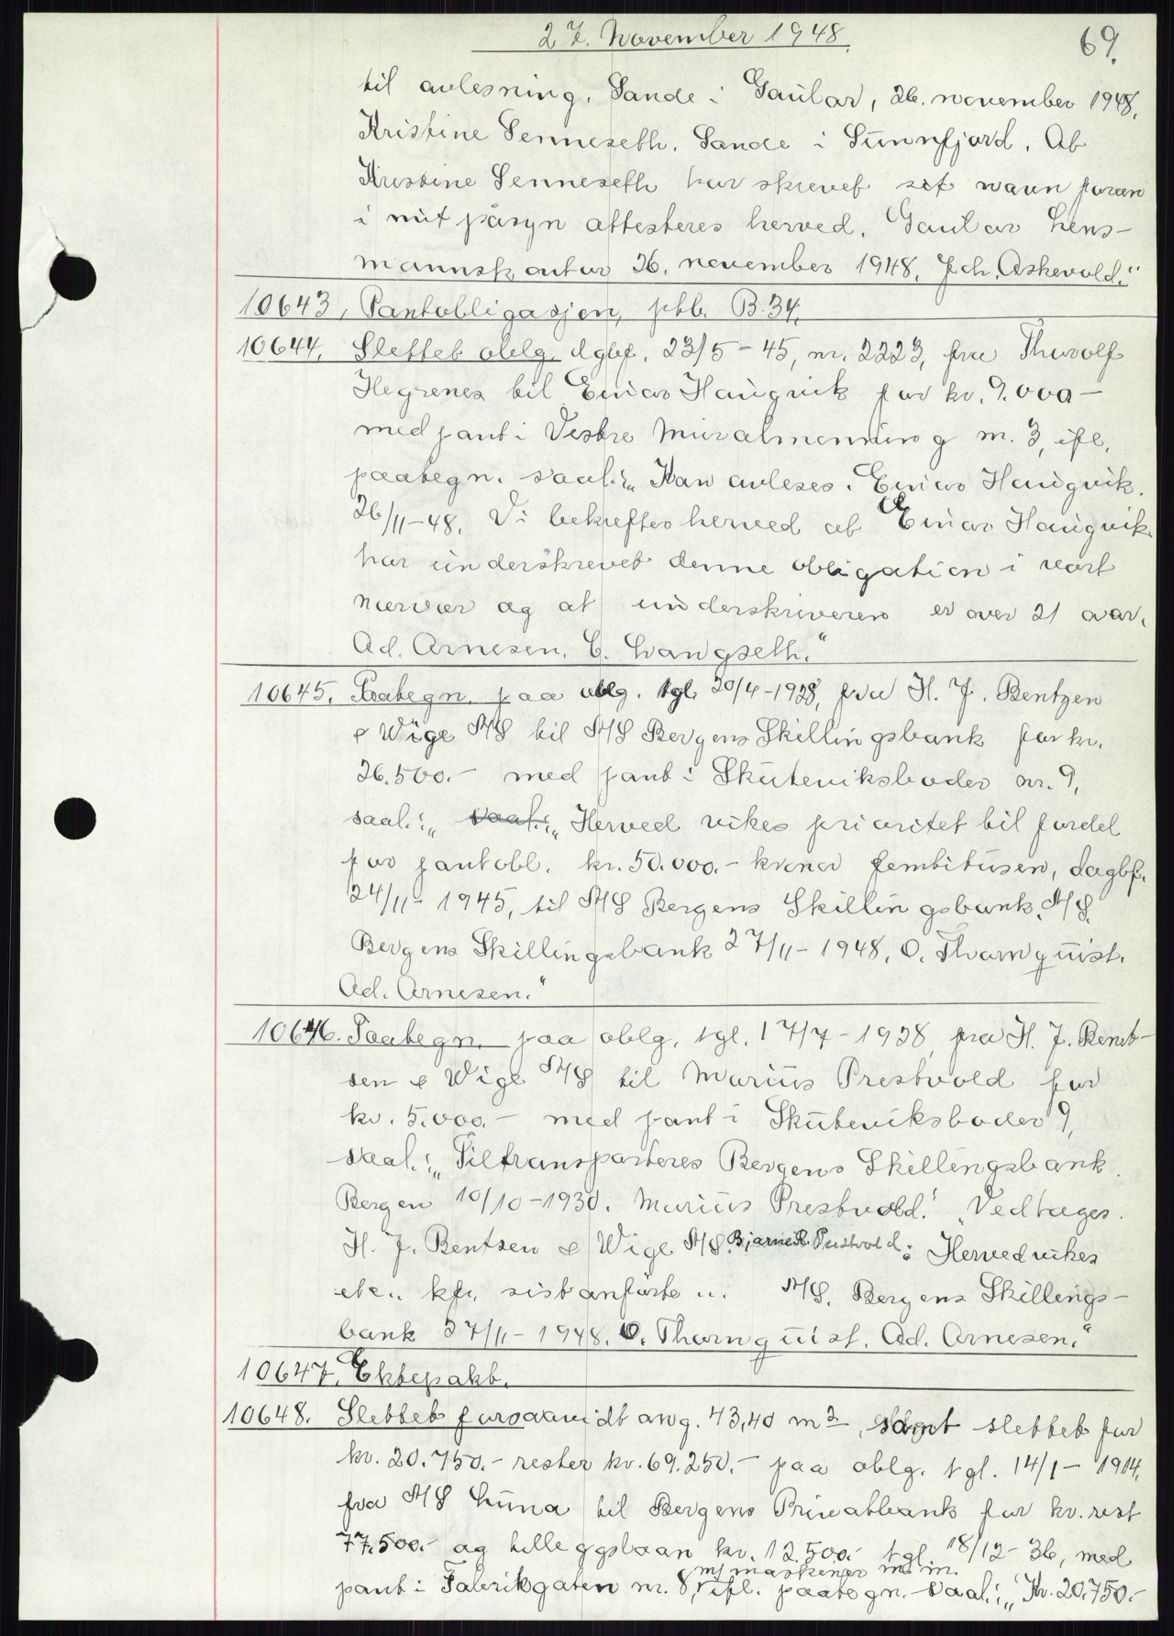 27. November 1948.
69.
til avlesning. Sande i Gaular, 26. november 1948.
Kristine Senneseth. Sande i Sunnfjord. At
Kristine Senneseth har skrevet set navn foran
i mit påsyn attesteres herved. Gaular Lens-
mannskontor 26. november 1948. Joh. Askevold."
10643, Pantobligasjon, ptb. B.34.
10644. Slettet oblg. dgbf. 23/5-45, nr. 2223, fra Thorolf
Hegrenes til Einar Haugvik for kr. 9.000-
med pant i Vestre Muralmenning nr. 3, ifl.
paategn. saal.: „Kan avleses. Einar Haugvik.
26/11-48. Vi bekrefter herved at Einar Haugvik
har underskrevet denne obligation i vort
nærvær og at underskriveren er over 21 aar.
Ad. Arnesen. C. Langseth."
10645. Paategn. paa oblg. tgl. 20/4-1928, fra H. J. Bentzen
& Wige A/S til A/S Bergens Skillingsbank for kr.
26.500.- med pant i Skuteviksboder nr. 9,
saal.: „ saal.: „Herved vikes prioritet til fordel
for pantobl. kr. 50.000.- kroner femtitusen, dagbf.
24/11-1945, til A/S Bergens Skillingsbank. A/S.
Bergens Skillingsbank 27/11-1948. O. Thornquist.
Ad. Arnesen."
10646. Paategn. paa oblg. tgl. 17/7-1928, fra H. J. Bent-
sen & Wige A/S til Marius Prestvold for
kr. 5.000.- med pant i Skuteviksboder 9,
saal.: „Tiltransporteres Bergens Skillingsbank.
Bergen 10/10-1930. Marius Prestvold." „Vedtages.
H. J. Bentsen & Wige A/S. Bjarne R. Prestvold: Herved vikes
etc.. kfr. sistanförte ... A/S. Bergens Skillings-
bank 27/11-1948. O. Thornquist. Ad. Arnesen."
10647. Ektepakt.
10648. Slettet forsaavidt ang. 43,40 m2, samt slettet for
kr. 20.750.- rester kr. 69.250.- paa oblg. tgl. 14/1-1914,
fra A/S Luna til Bergens Privatbank for kr. rest
77.500.- og tilleggslaan kr. 12.500.- tgl. 18/12-36, med
m/maskiner m.m.
pant i Fabrikgaten nr. 8, ifl. paategn. saal.: „Kr. 20.750.-